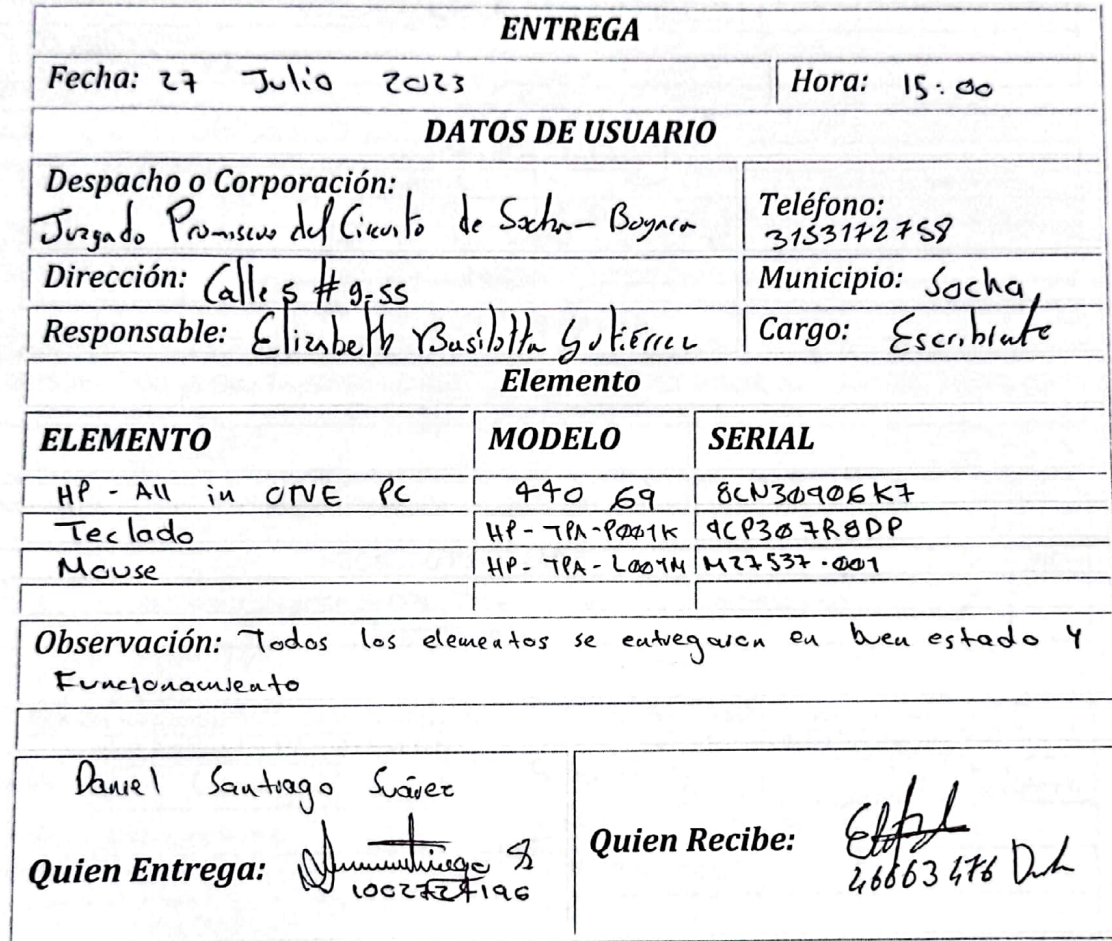 ENTREGA
Fecha: 27 Julio 2023
Hora: 15:00
DATOS DE USUARIO
Despacho o Corporación:
Juzgado Promiscuo del Circuito de Socha - Boyaca
Teléfono:
3153172758
Dirección: Calle 5 # 9-55
Municipio: Socha
Responsable: Elizabeth Gutiérrez
Cargo: Escribiente
Elemento
ELEMENTO MODELO SERIAL
HP - All in ONE PC 440 G9 8CN30906K7
Teclado HP-TPA-P001K 9CP307R8DP
Mouse HP-TPA-L001M M27537-001
Observación: Todos los elementos se entregaron en buen estado y
Funcionamiento
Daniel Santiago Suárez
Quien Entrega:
Quien Recibe: